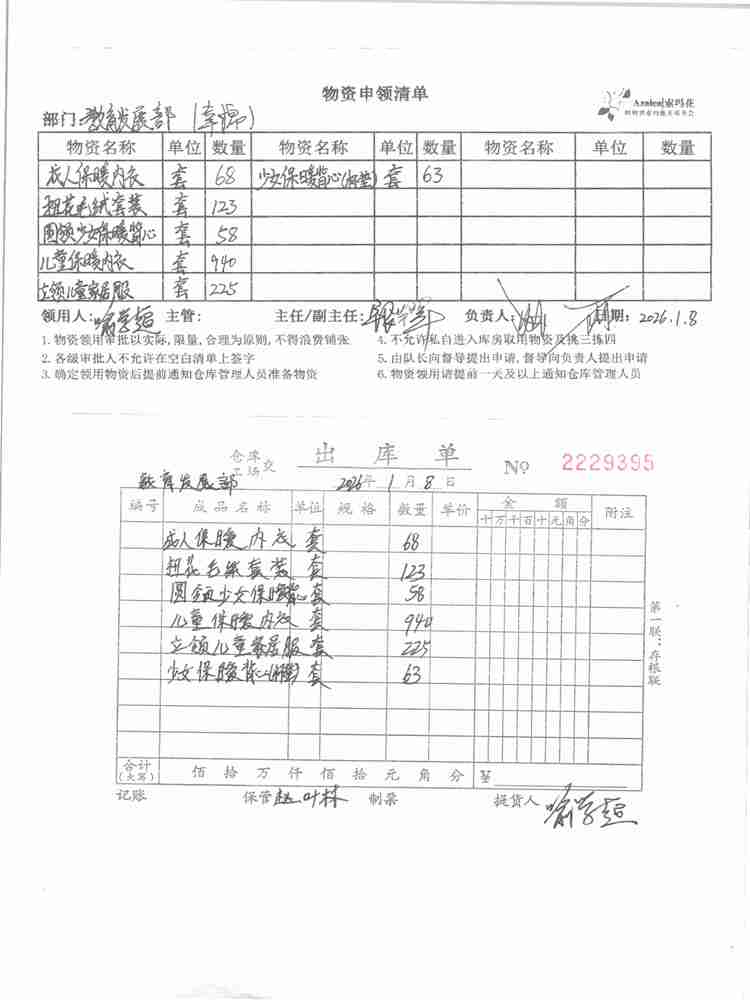 物资申领清单
Azalea|索玛花
部门:教育发展部
物资名称 单位 数量 物资名称 单位 数量 物资名称 单位 数量
成人保暖内衣 套 68 少女保暖背心(衬垫) 套 63
扭花毛绒套装 套 123
圆领少女保暖背心 套 58
儿童保暖内衣 套 940
立领儿童家居服 套 225
领用人: 主管: 主任/副主任: 负责人: 日期: 2026.1.8
1.物资领用审批以实际,限量,合理为原则,不得浪费铺张 4.不允许私自进入库房取用物资及挑三拣四
2.各级审批人不允许在空白清单上签字 5.由队长向督导提出申请,督导向负责人提出申请
3.确定领用物资后提前通知仓库管理人员准备物资 6.物资领用请提前一天及以上通知仓库管理人员
仓库
工场交
出库单
№ 2229395
教育发展部 2026年 1月 8日
编号 成品名称 单位 规格 数量 单价 金额 附注
十万千百十元角分
成人保暖内衣 套 68
扭花毛绒套装 套 123
圆领少女保暖背心 套 58
儿童保暖内衣 套 940
立领儿童家居服 套 225
少女保暖背心(衬垫) 套 63
第一联:存根联
合计
(大写) 佰 拾 万 仟 佰 拾 元 角 分 ¥
记账 保管 赵叶林 制票 提货人